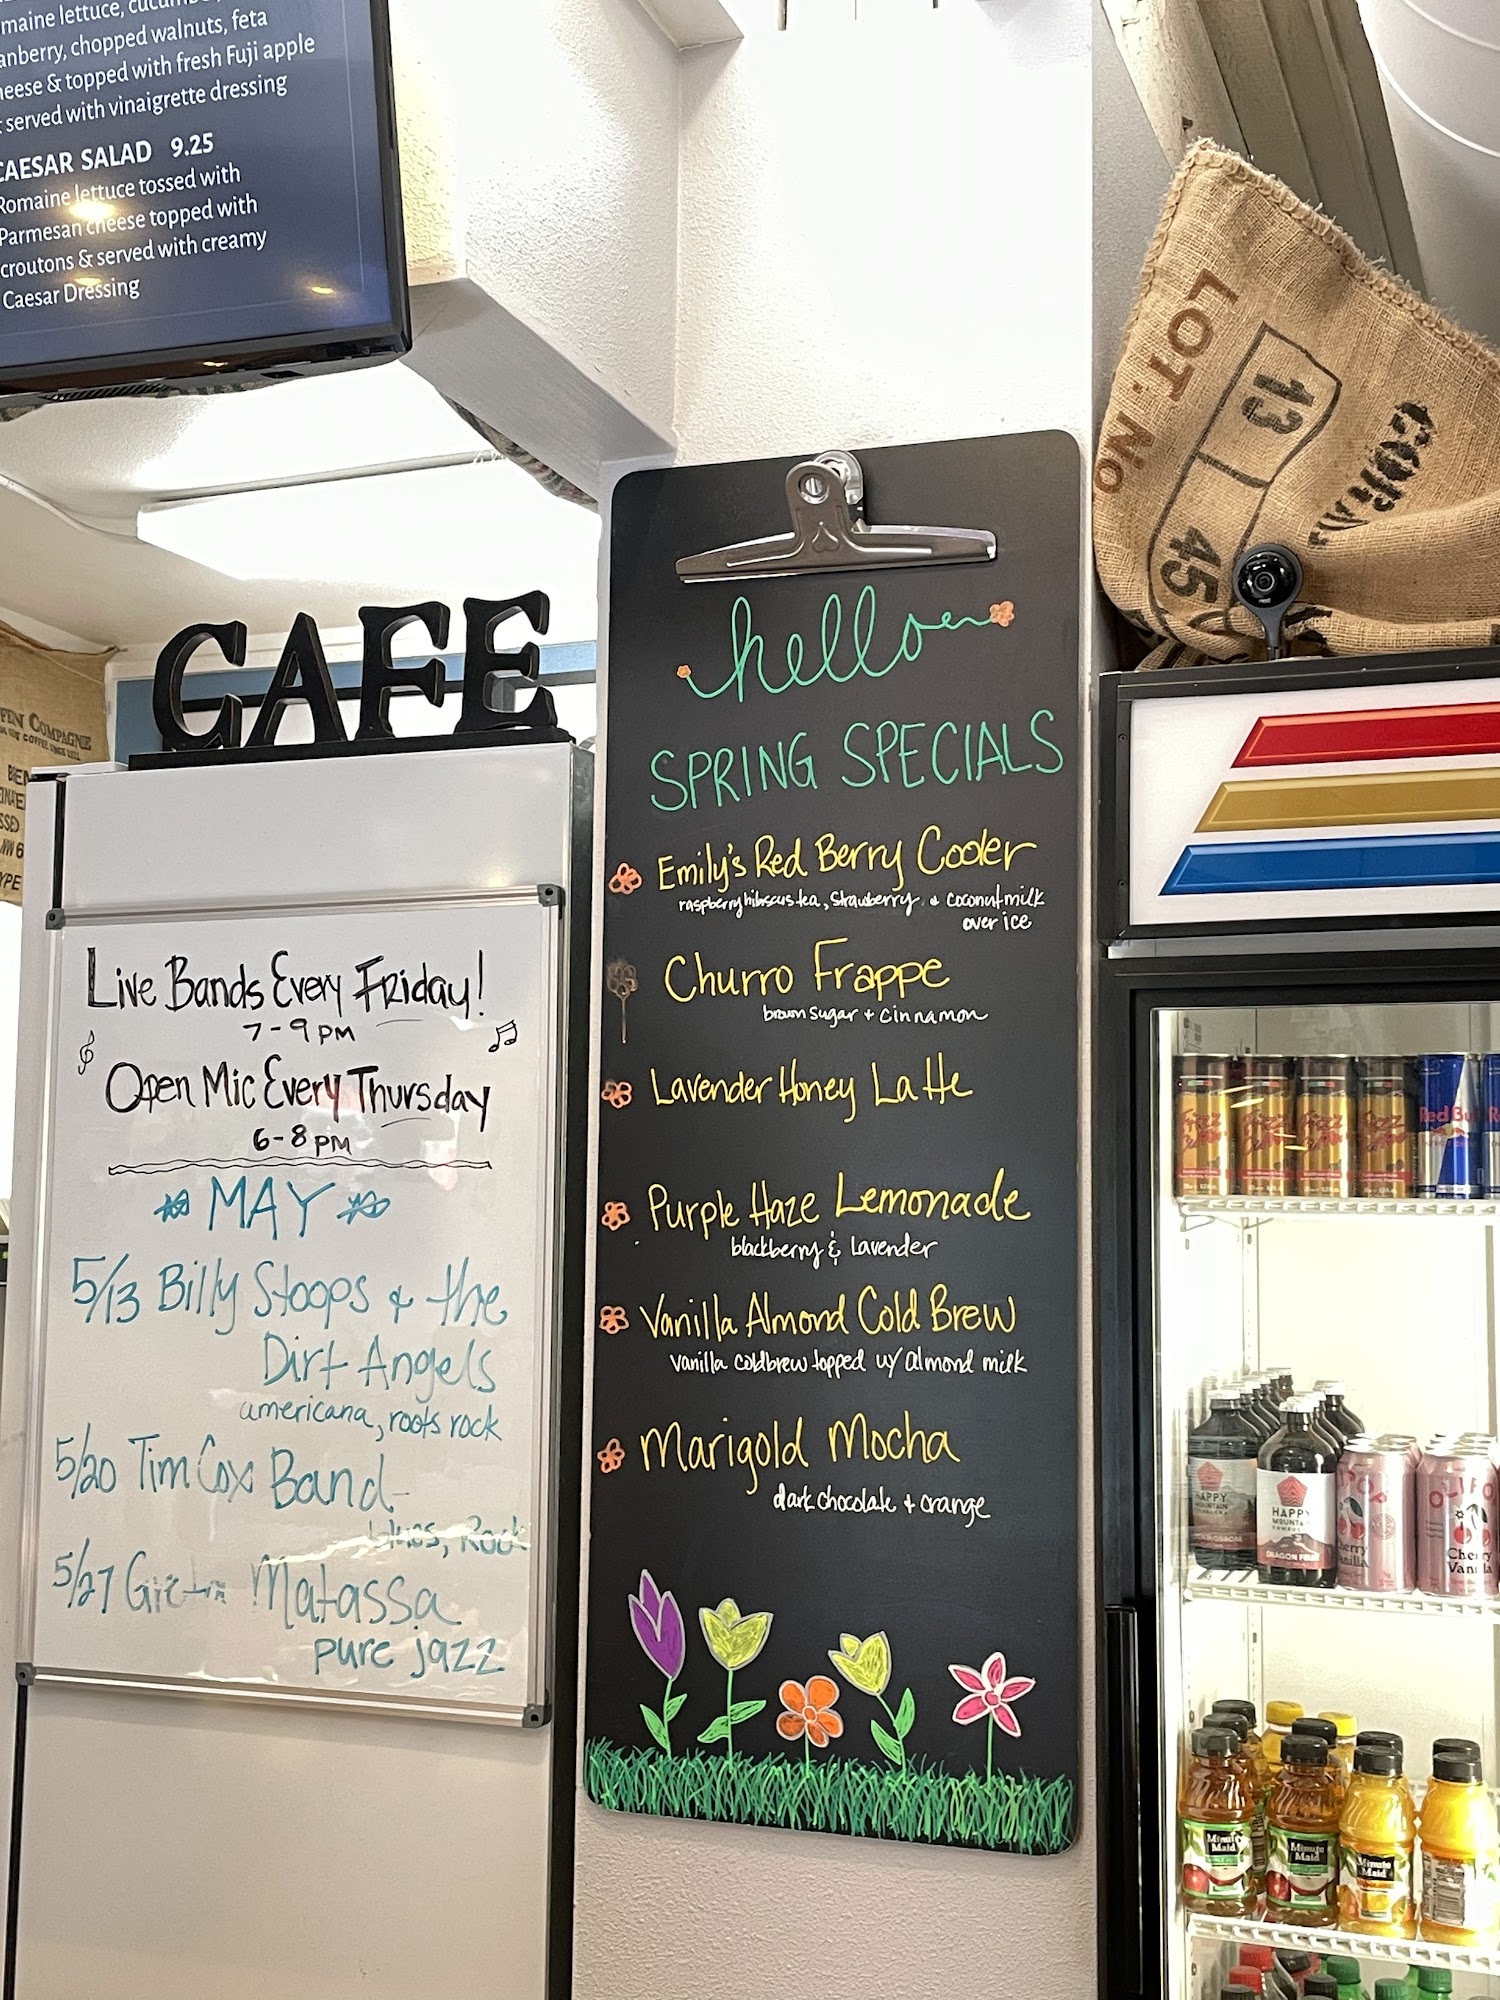 romaine lettuce,
cranberry, chopped walnuts, feta
cheese & topped with fresh Fuji apple
served with vinaigrette dressing
CAESAR SALAD 9.25
Romaine lettuce tossed with
Parmesan cheese topped with
croutons & served with creamy
Caesar Dressing
CAFE
Live Bands Every Friday!
7-9 PM
Open Mic Every Thursday
6-8 PM
MAY
5/13 Billy Stoops & the
Dirt Angels
americana, roots rock
5/20 Tim Cox Band-
blues, Rock
5/27 Matassa
pure jazz
hello
SPRING SPECIALS
Emily's Red Berry Cooler
raspberry hibiscus tea, strawberry & coconut milk
over ice
Churro Frappe
brown sugar + cinnamon
Lavender Honey Latte
Purple Haze Lemonade
blackberry & lavender
Vanilla Almond Cold Brew
vanilla coldbrew topped w/ almond milk
Marigold Mocha
dark chocolate + orange
LOT. No
13
45
COMPAGNIE
Red Bull
HAPPY
MOUNTAIN
DRAGON FRUIT
HAPPY
MOUNTAIN
OLIPOP
Cherry
Vanilla
Cherry
Vanilla
Minute
Maid
Minute
Maid
Minute
Maid